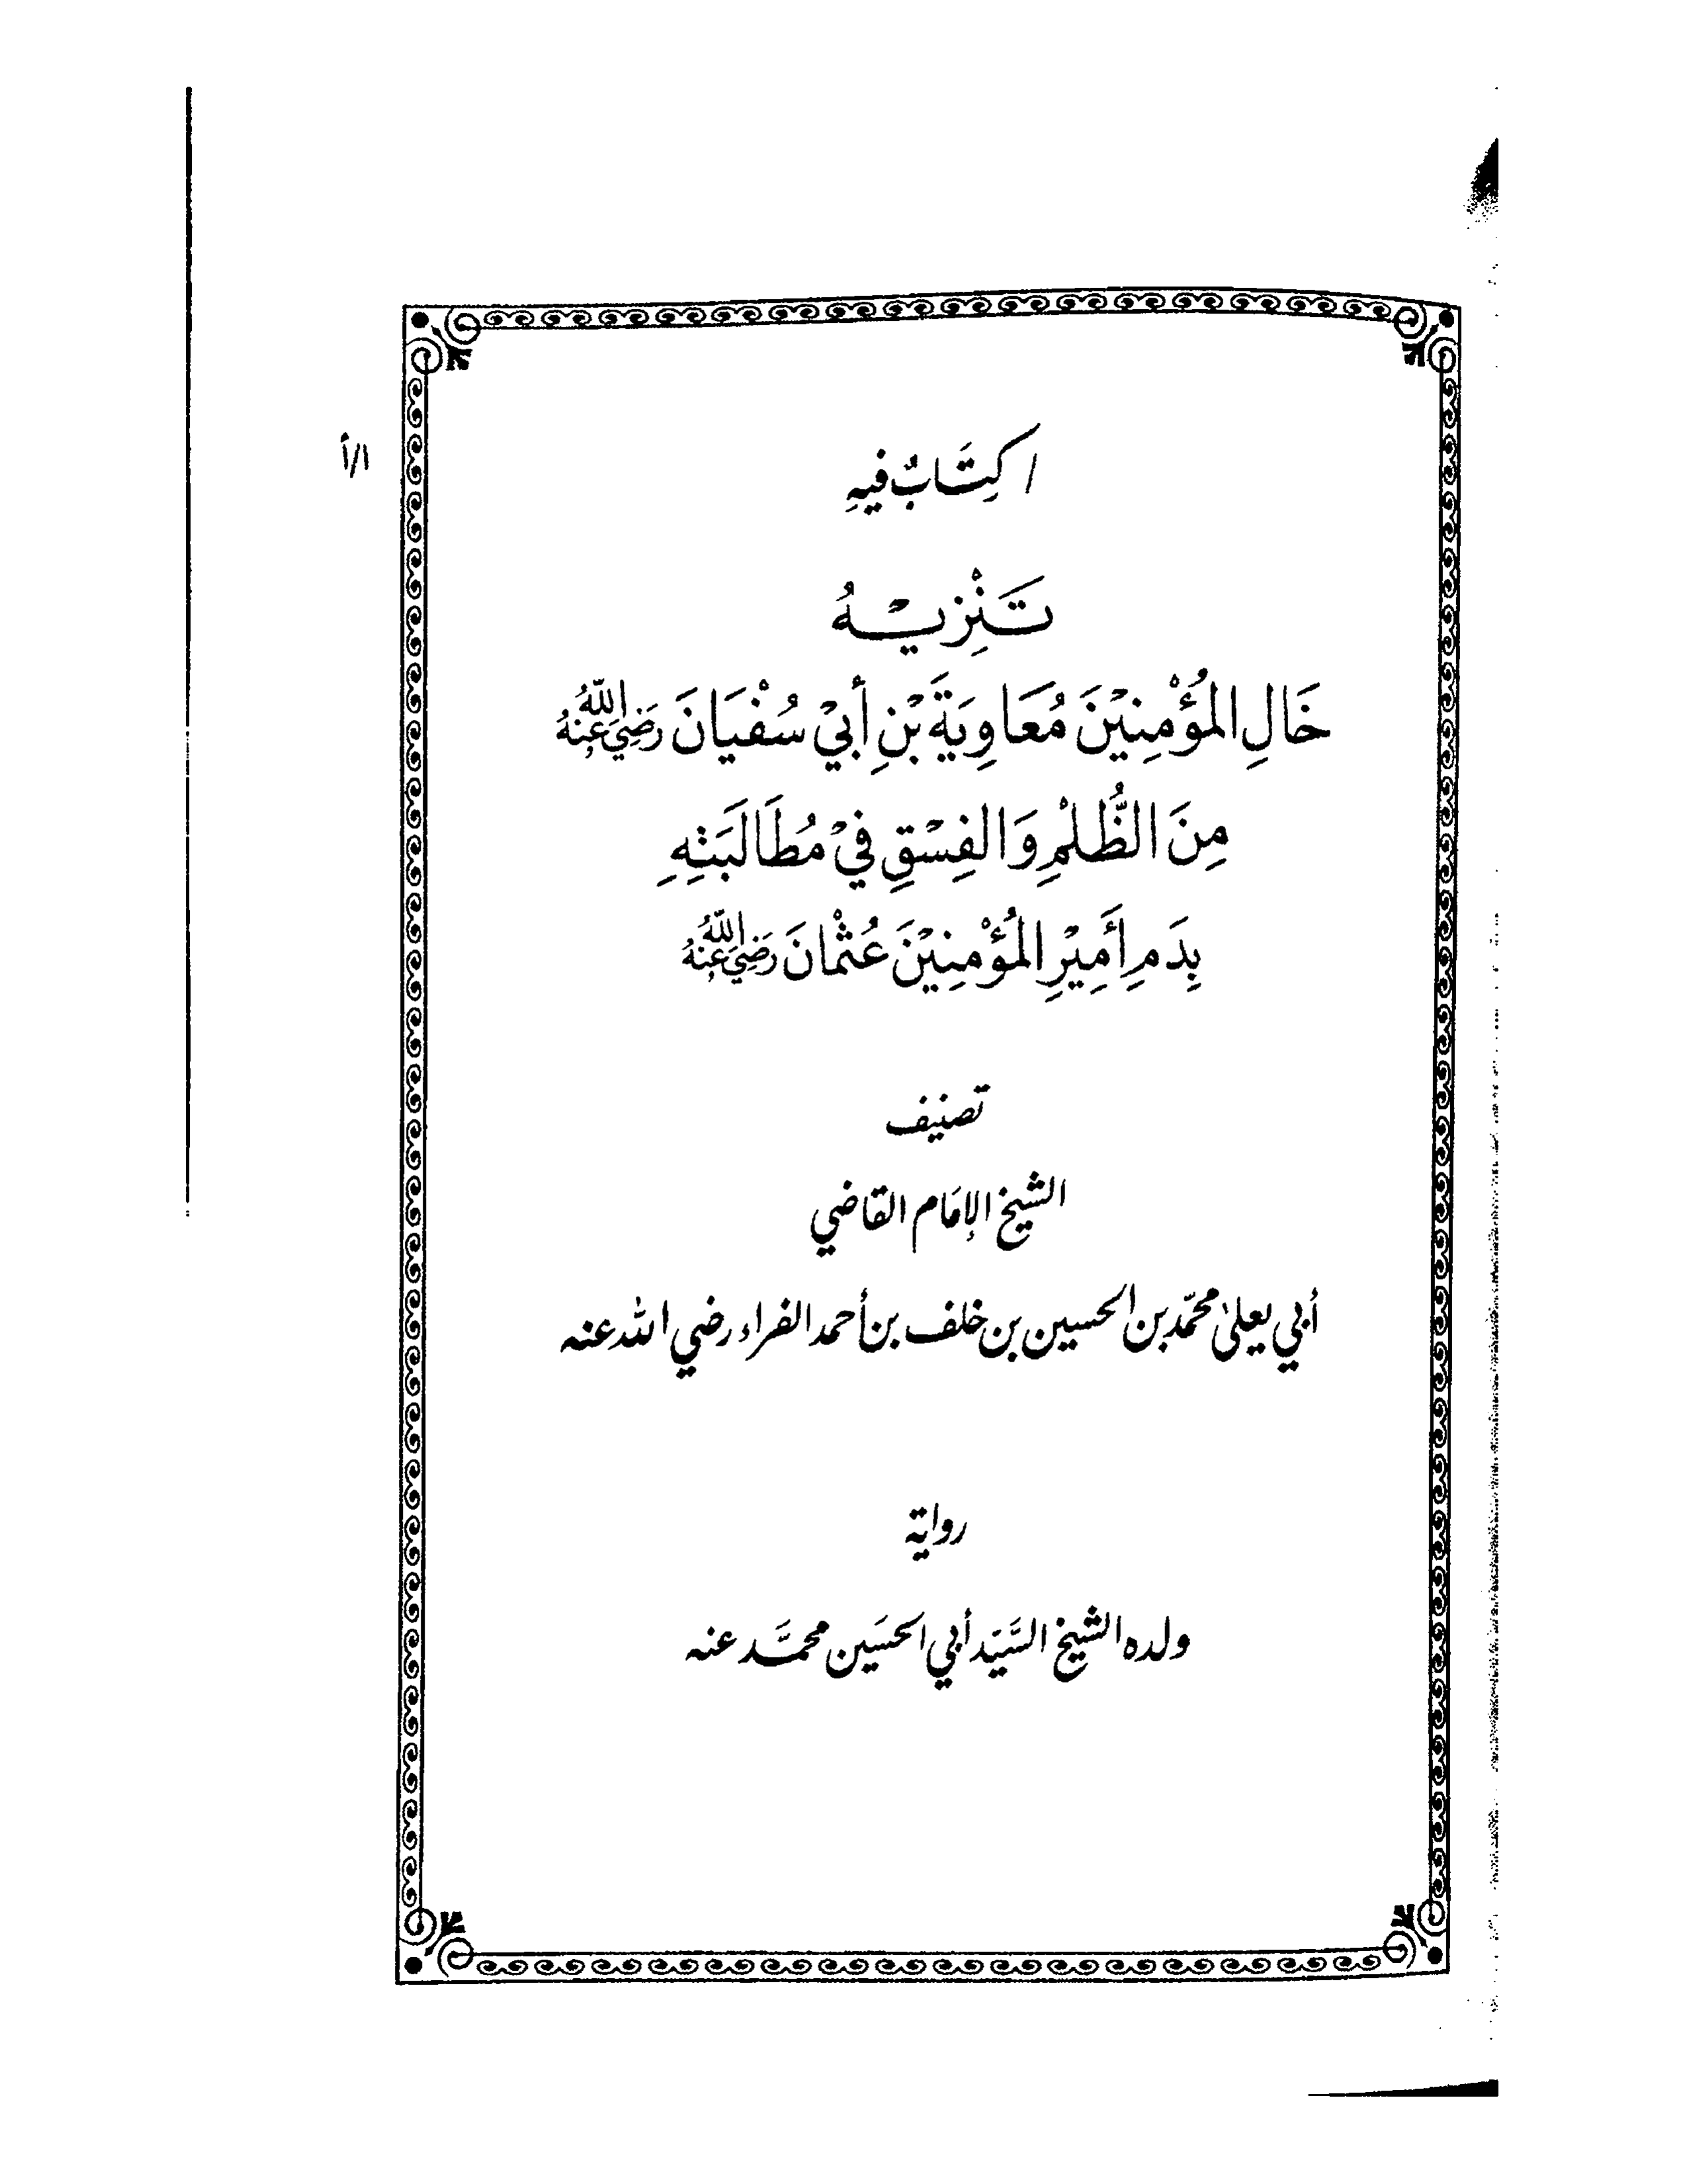 ١/أ
/ كِتَابٌ فِيهِ
تَنْزِيْهُ
خَالِ المُؤْمِنِيْنَ مُعَاوِيَةَ بْنِ أَبِيْ سُفْيَانَ رَضِيَ اللهُ عَنْهُ
مِنَ الظُّلْمِ وَالفِسْقِ فِيْ مُطَالَبَتِهِ
بِدَمِ أَمِيْرِ المُؤْمِنِيْنَ عُثْمانَ رَضِيَ اللهُ عَنْهُ
تصنيف
الشيخ الإمَام القَاضي
أبي يعلىٰ محمّد بن الحسين بن خلف بن أحمد الفراء رضي الله عنه
رواية
ولده الشيخ السَّيّد أبي الحسَين محمَّد عنه